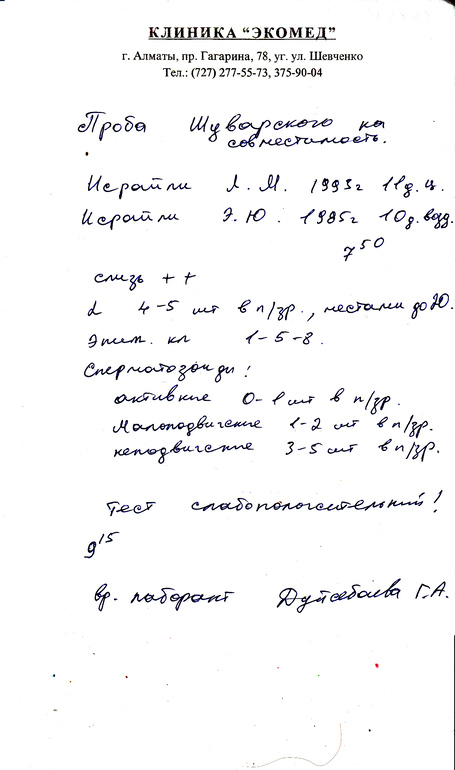 КЛИНИКА “ЭКОМЕД”
г. Алматы, пр. Гагарина, 78, уг. ул. Шевченко
Тел.: (727) 277-55-73, 375-90-04
Проба Шуварского на
совместимость.
Исраили Л. М. 1993г 11д.ц.
Исраили Э. Ю. 1985г 10д. возд.
7 50
слизь ++
L 4-5 шт в п/зр., местами до 20.
Эпит. кл 1-5-8.
Сперматозоиды:
активные 0-1 шт в п/зр.
Малоподвижные 1-2 шт в п/зр.
неподвижные 3-5 шт в п/зр.
Тест слабоположительный!
9 15
вр. лаборант Дуйсебаева Г.А.